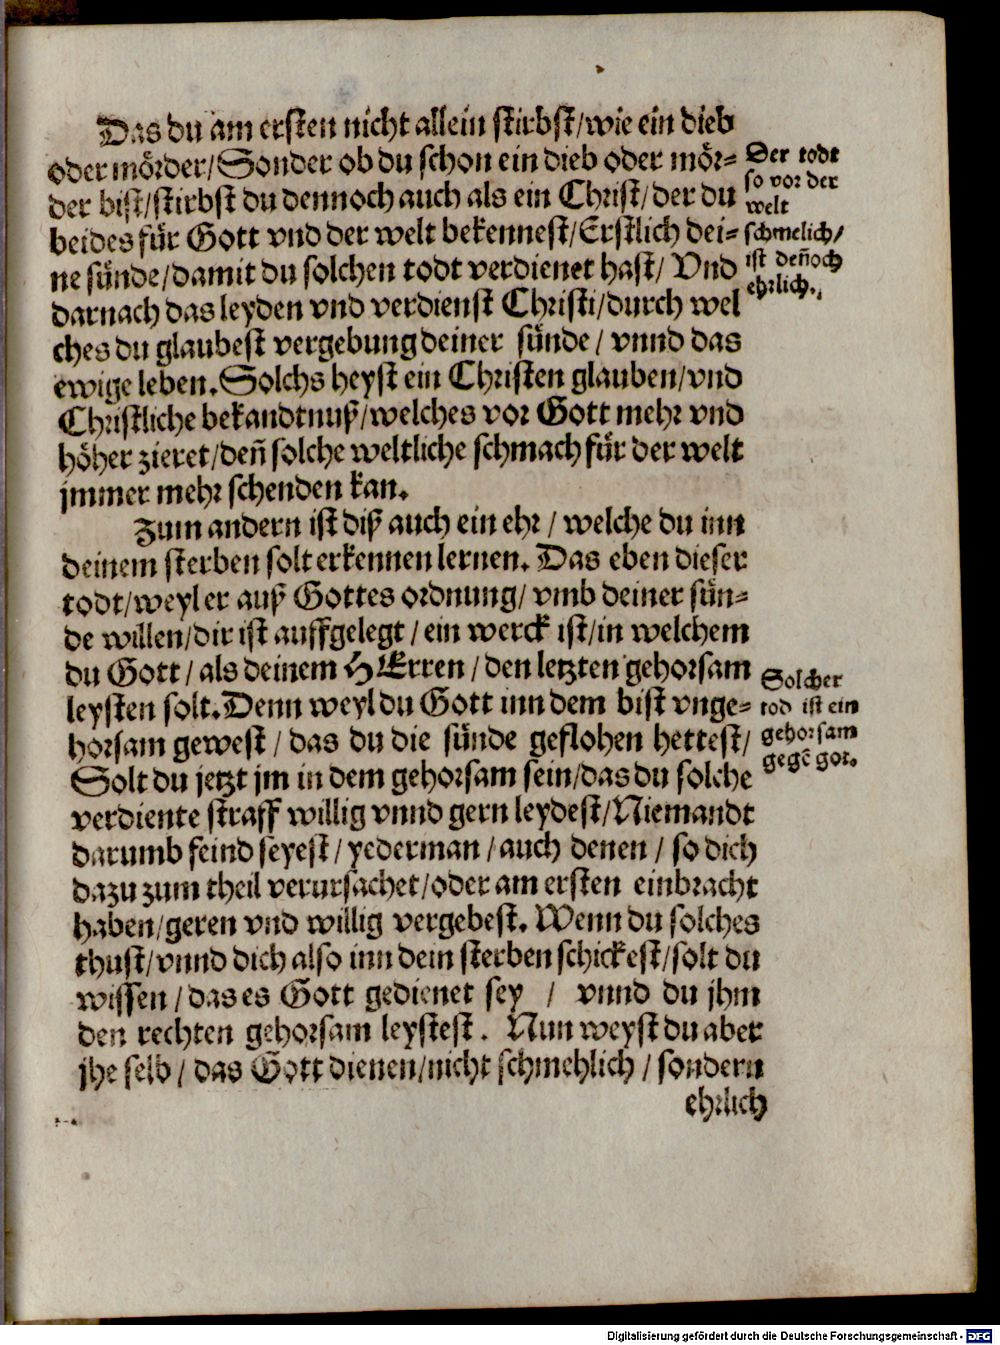 Das du am ersten nicht allein stirbst/wie ein dieb
oder mörder/Sonder ob du schon ein dieb oder mör-
der bist/stirbst du dennoch auch als ein Christ/der du
beides für Gott vnd der welt bekennest/Erstlich dei-
ne sünde/damit du solchen todt verdienet hast/Vnd
darnach das leyden vnd verdienst Christi/durch wel
ches du glaubest vergebung deiner sünde/vnnd das
ewige leben.Solchs heyst ein Christen glauben/vnd
Christliche bekandtnuß/welches vor Gott mehr vnd
höher zieret/deñ solche weltliche schmach für der welt
jmmer mehr schenden kan.
Der todt
so vor der
welt
schmelich/
ist deñoch
ehrlich.
Zum andern ist diß auch ein ehr/welche du inn
deinem sterben solt erkennen lernen. Das eben dieser
todt/weyl er auß Gottes ordnung/vmb deiner sün-
de willen/dir ist auffgelegt/ein werck ist/in welchem
du Gott/als deinem HErren/den letzten gehorsam
leysten solt.Denn weyl du Gott inn dem bist vnge-
horsam gewest/das du die sünde geflohen hettest/
Solt du jetzt jm in dem gehorsam sein/das du solche
verdiente straff willig vnnd gern leydest/Niemandt
darumb feind seyest/yederman/auch denen/so dich
dazu zum theil verursachet/oder am ersten einbracht
haben/geren vnd willig vergebest. Wenn du solches
thust/vnnd dich also inn dem sterben schickest/solt du
wissen/das es Gott gedienet sey/vnnd du jhm
den rechten gehorsam leystest. Nun weyst du aber
jhe selb/das Gott dienen/nicht schmehlich/sondern
ehrlich
Solcher
tod ist ein
gehorsam
gegē got.
Digitalisierung gefördert durch die Deutsche Forschungsgemeinschaft - DFG